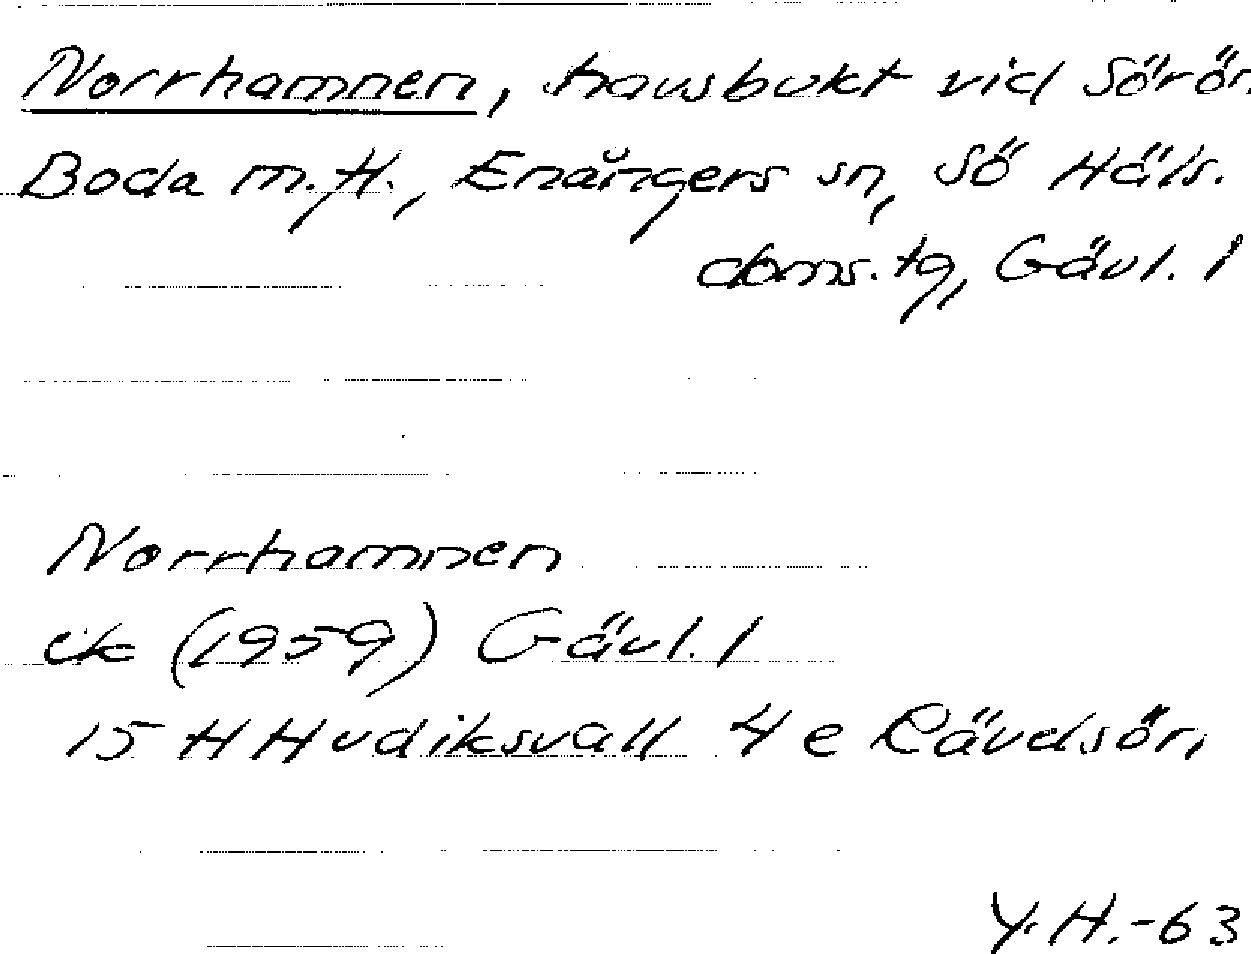 Norrhamnen, havsbukt vid Sörön
Boda m.fl., Enångers sn, Sö Häls.
doms.tg, Gävl. l
Norrhamnen
ek (1959) Gävl. l
15 H Hudiksvall 4 e Rävelsön
Y.H.-63